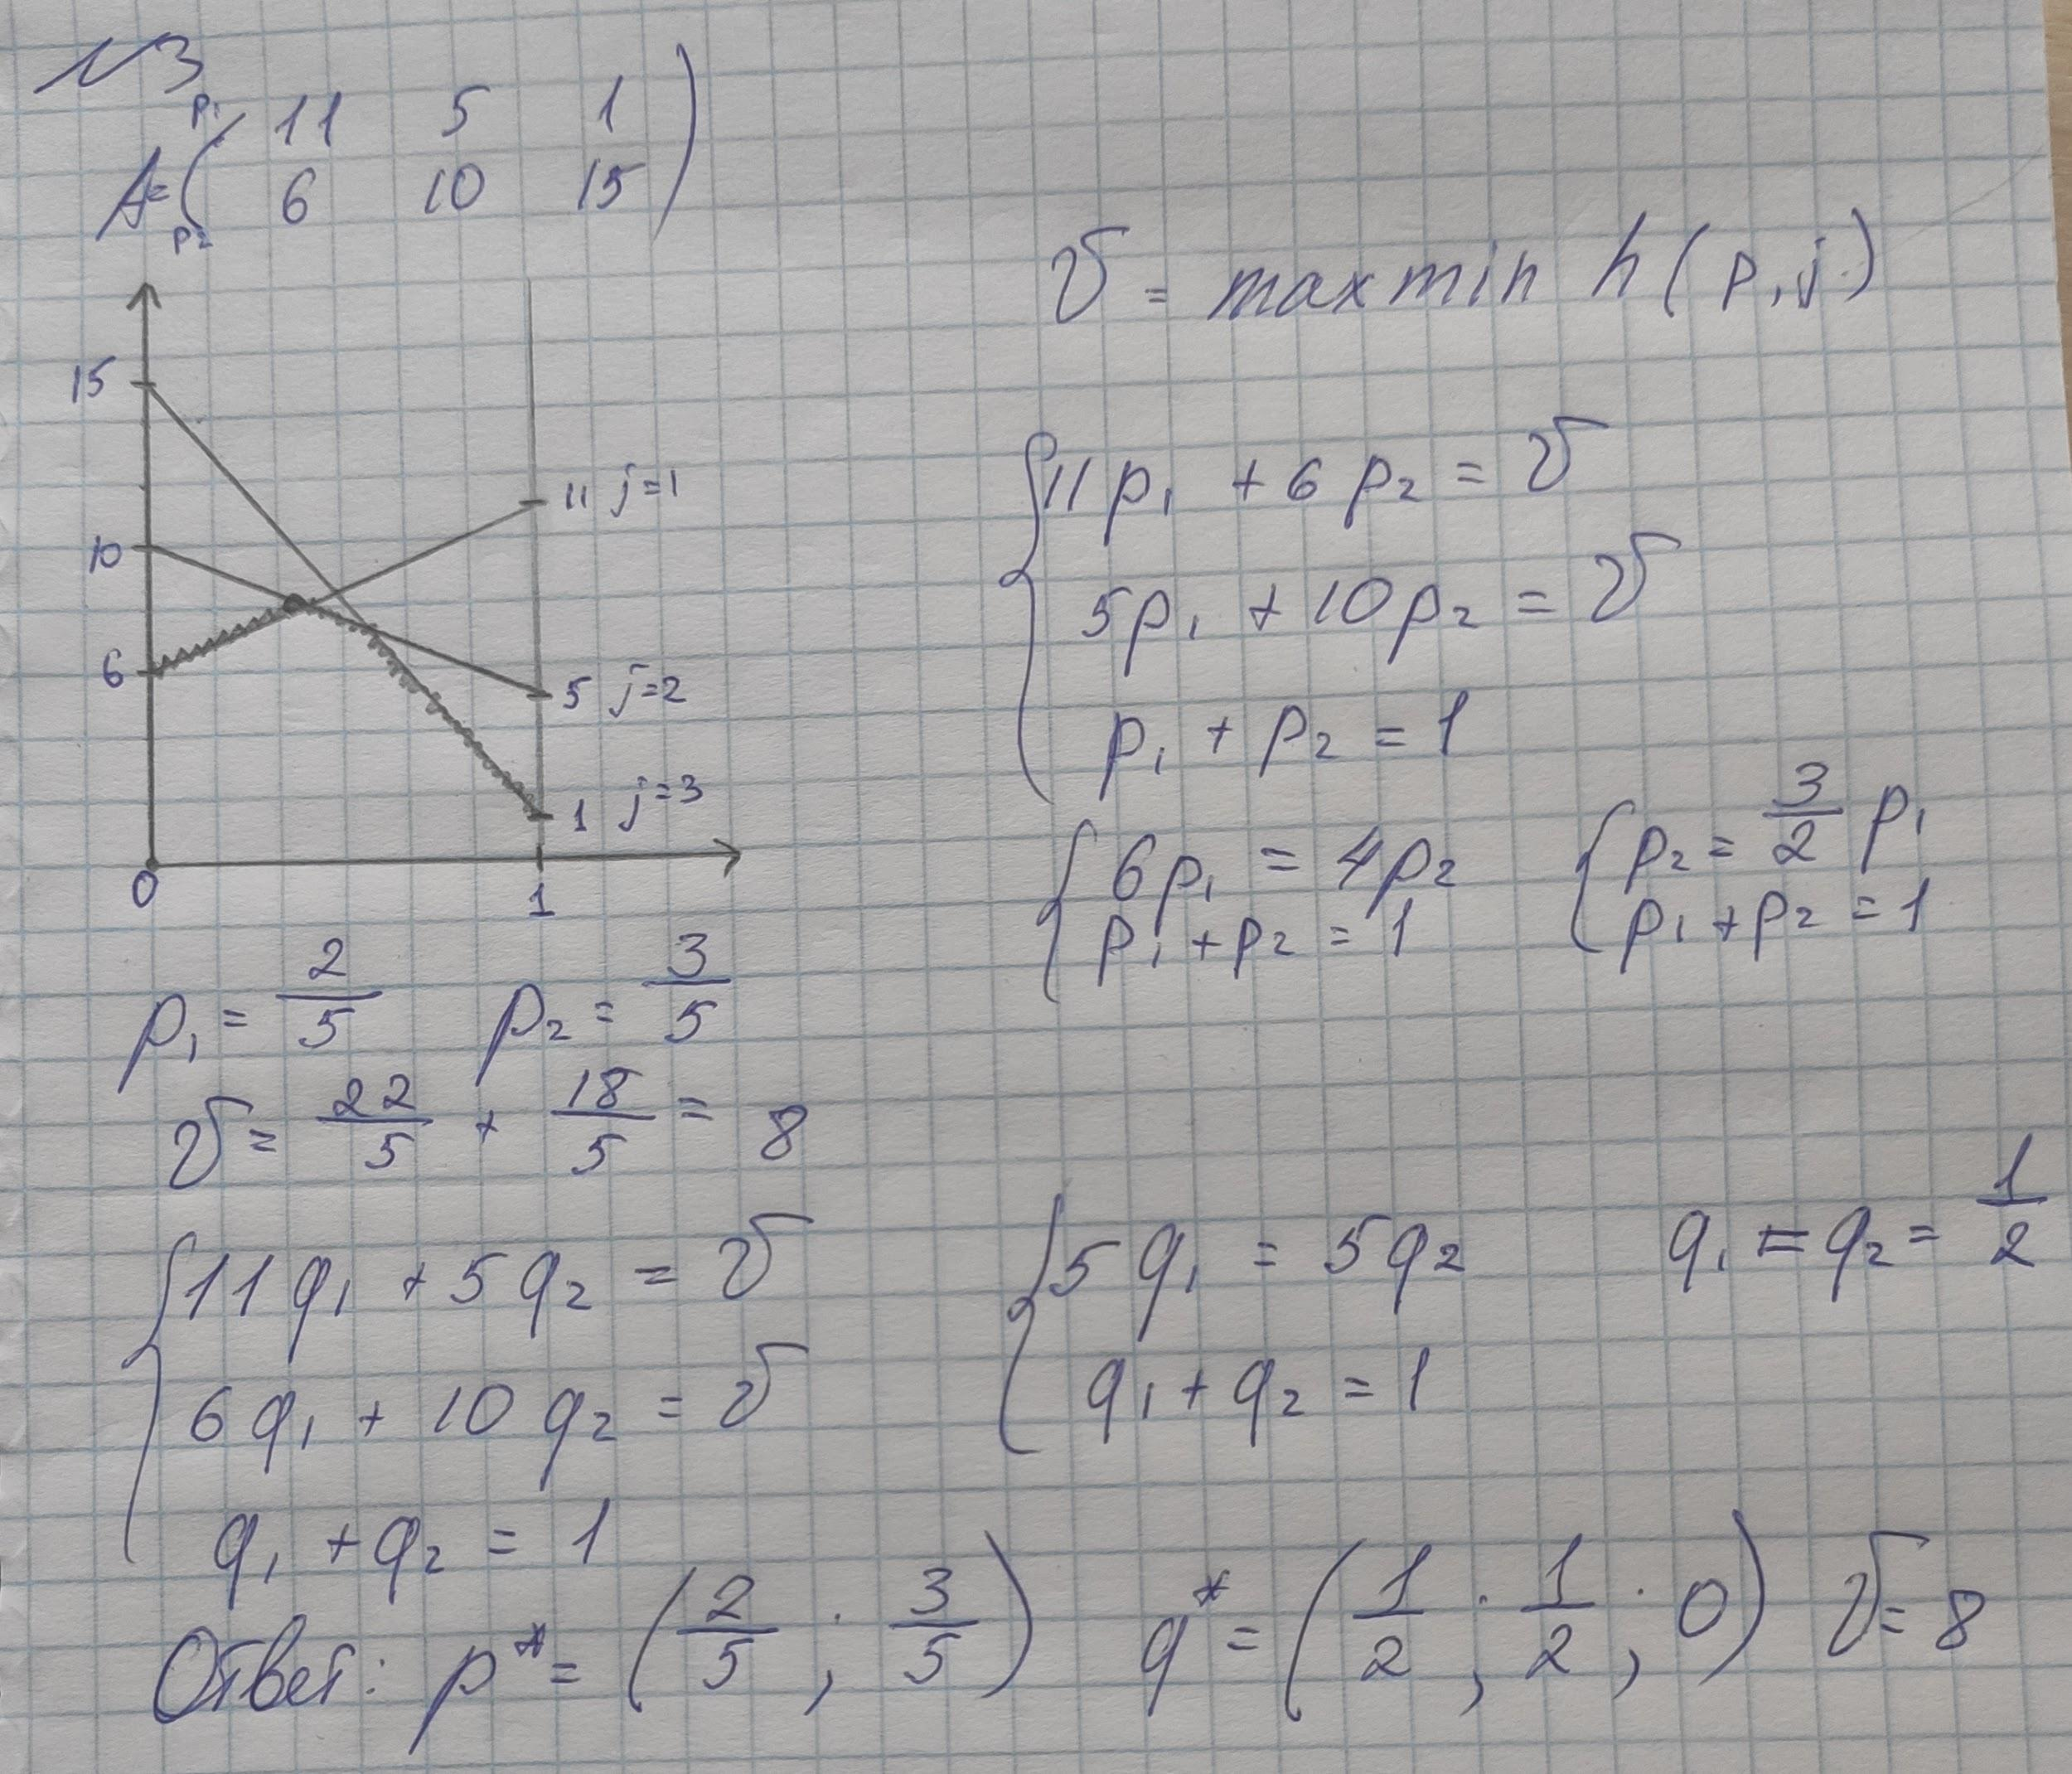 №3
p₁
A = ( 11 5 1
6 10 15 )
p₂
v = max min h(p, j)
15
10
6
0
1
11 j=1
5 j=2
1 j=3
{ 11p₁ + 6p₂ = v
5p₁ + 10p₂ = v
p₁ + p₂ = 1
{ 6p₁ = 4p₂
p₁ + p₂ = 1
{ p₂ = 3/2 p₁
p₁ + p₂ = 1
p₁ = 2/5 p₂ = 3/5
v = 22/5 + 18/5 = 8
{ 11q₁ + 5q₂ = v
6q₁ + 10q₂ = v
q₁ + q₂ = 1
{ 5q₁ = 5q₂
q₁ + q₂ = 1
q₁ = q₂ = 1/2
Ответ: p* = (2/5 ; 3/5) q* = (1/2 ; 1/2 ; 0) v = 8